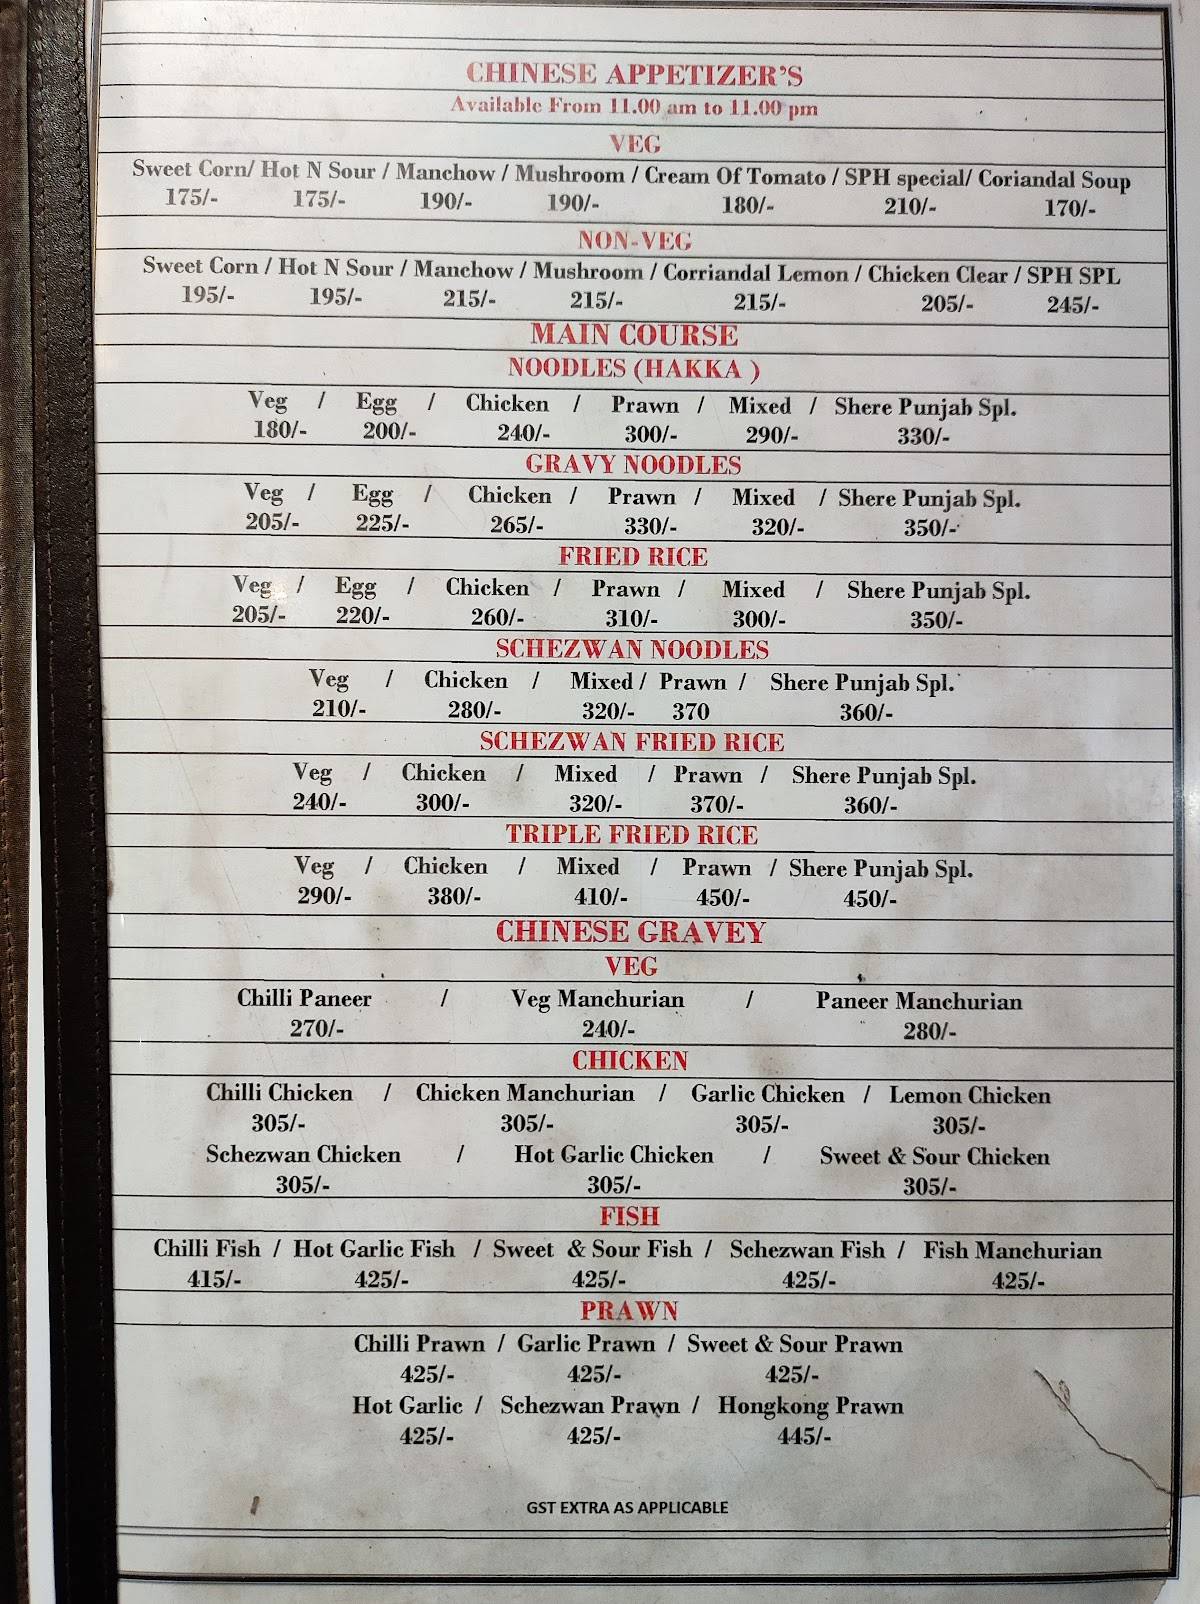 CHINESE APPETIZER'S
Available From 11.00 am to 11.00 pm
VEG
Sweet Corn/ Hot N Sour / Manchow / Mushroom / Cream Of Tomato / SPH special/ Coriandal Soup
175/- 175/- 190/- 190/- 180/- 210/- 170/-
NON-VEG
Sweet Corn / Hot N Sour / Manchow / Mushroom / Corriandal Lemon / Chicken Clear / SPH SPL
195/- 195/- 215/- 215/- 215/- 205/- 245/-
MAIN COURSE
NOODLES (HAKKA )
Veg / Egg / Chicken / Prawn / Mixed / Shere Punjab Spl.
180/- 200/- 240/- 300/- 290/- 330/-
GRAVY NOODLES
Veg / Egg / Chicken / Prawn / Mixed / Shere Punjab Spl.
205/- 225/- 265/- 330/- 320/- 350/-
FRIED RICE
Veg / Egg / Chicken / Prawn / Mixed / Shere Punjab Spl.
205/- 220/- 260/- 310/- 300/- 350/-
SCHEZWAN NOODLES
Veg / Chicken / Mixed / Prawn / Shere Punjab Spl.
210/- 280/- 320/- 370 360/-
SCHEZWAN FRIED RICE
Veg / Chicken / Mixed / Prawn / Shere Punjab Spl.
240/- 300/- 320/- 370/- 360/-
TRIPLE FRIED RICE
Veg / Chicken / Mixed / Prawn / Shere Punjab Spl.
290/- 380/- 410/- 450/- 450/-
CHINESE GRAVEY
VEG
Chilli Paneer / Veg Manchurian / Paneer Manchurian
270/- 240/- 280/-
CHICKEN
Chilli Chicken / Chicken Manchurian / Garlic Chicken / Lemon Chicken
305/- 305/- 305/- 305/-
Schezwan Chicken / Hot Garlic Chicken / Sweet & Sour Chicken
305/- 305/- 305/-
FISH
Chilli Fish / Hot Garlic Fish / Sweet & Sour Fish / Schezwan Fish / Fish Manchurian
415/- 425/- 425/- 425/- 425/-
PRAWN
Chilli Prawn / Garlic Prawn / Sweet & Sour Prawn
425/- 425/- 425/-
Hot Garlic / Schezwan Prawn / Hongkong Prawn
425/- 425/- 445/-
GST EXTRA AS APPLICABLE